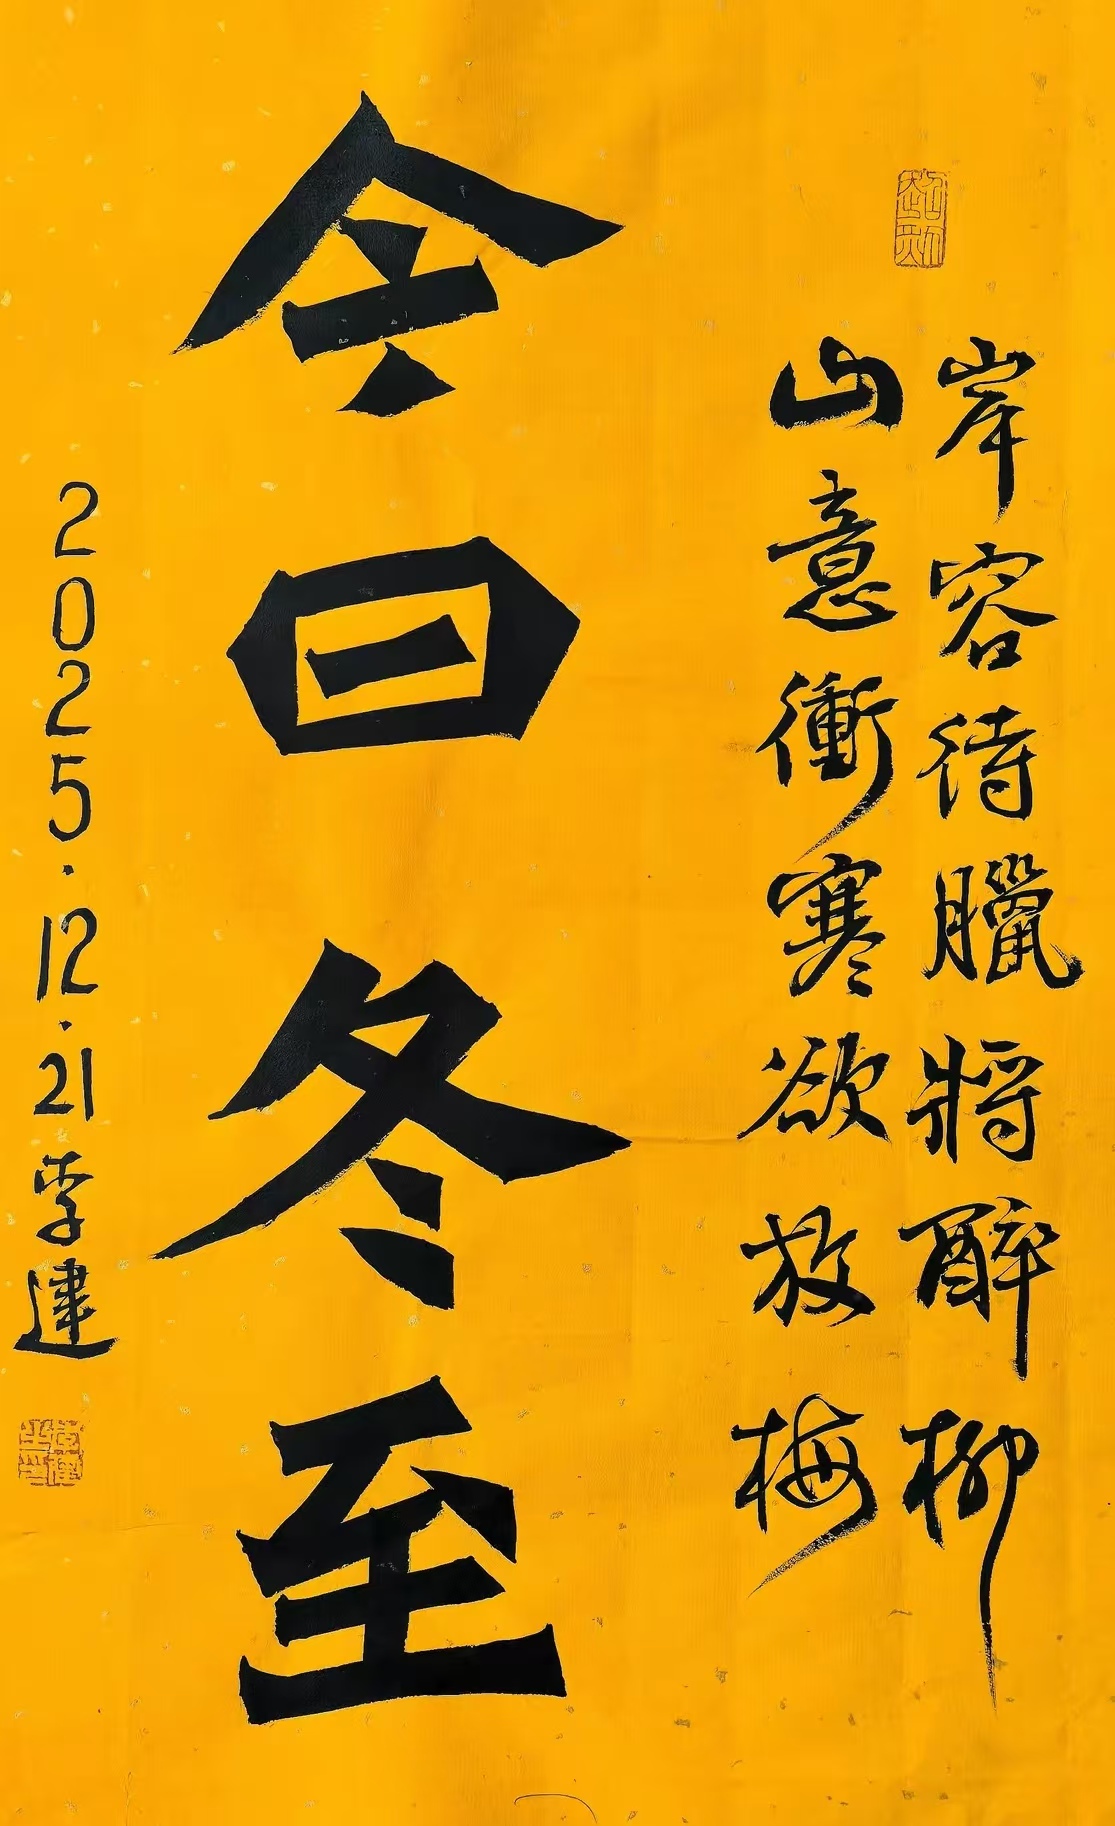 岸容待臘將醉柳
山意衝寒欲放梅
今日冬至
2025·12·21李建